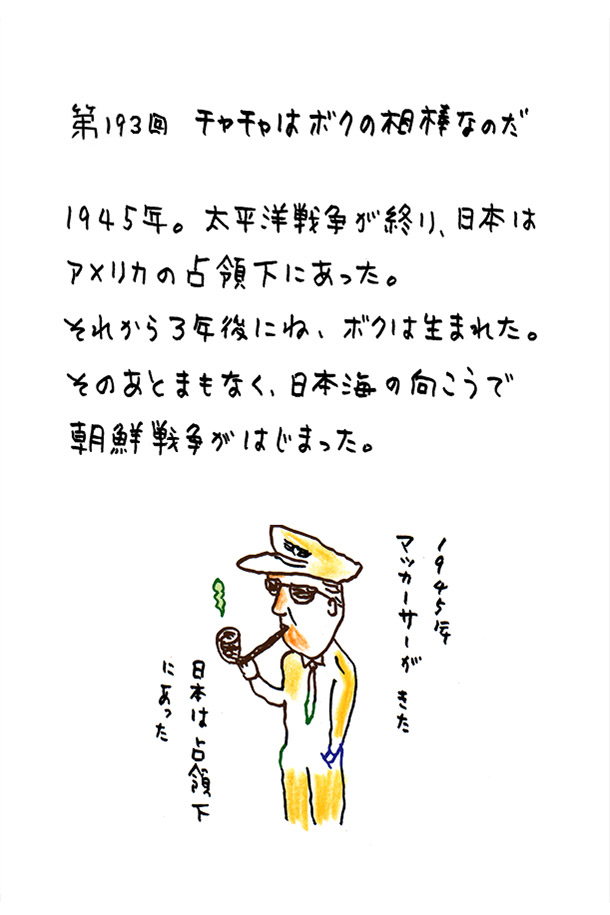 第193回 チャチャはボクの相棒なのだ
1945年。太平洋戦争が終り、日本は
アメリカの占領下にあった。
それから3年後にね、ボクは生まれた。
そのあとまもなく、日本海の向こうで
朝鮮戦争がはじまった。
1945年
マッカーサーが きた
日本は占領下
にあった